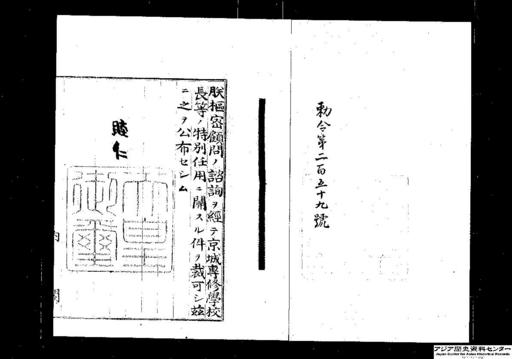 勅令第二百五十九號
朕樞密顧問ノ諮詢ヲ經テ京城專修學校
長等ノ特別任用ニ關スル件ヲ裁可シ玆
ニ之ヲ公布セシム
睦仁
天皇御璽
内閣
アジア歴史資料センター
Japan Center for Asian Historical Records